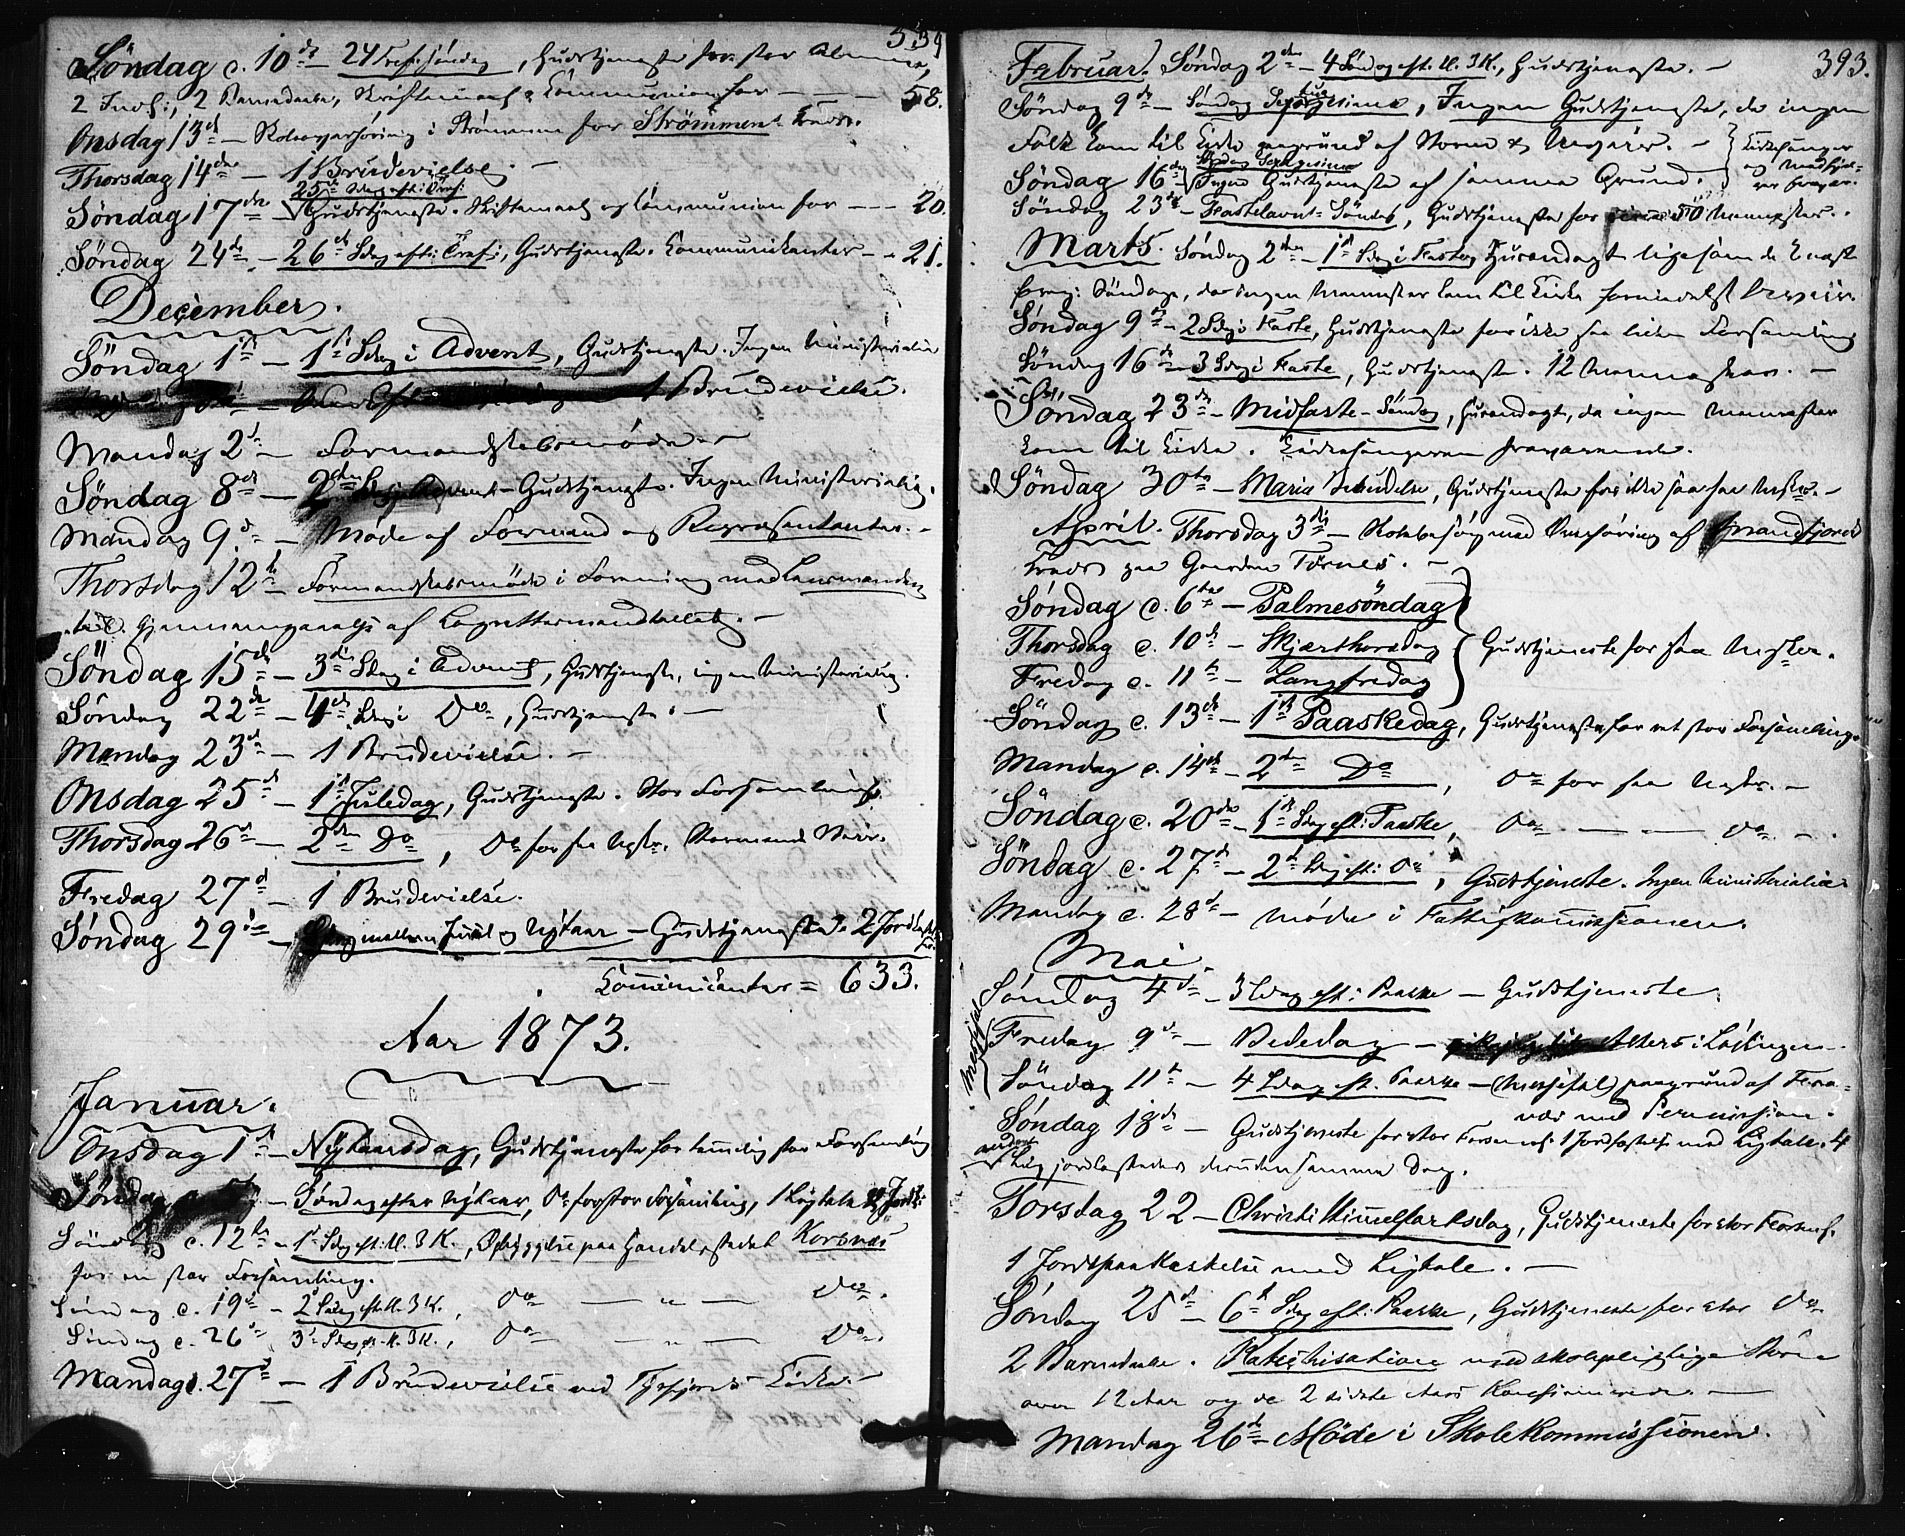 339
Søndag d. 10de – 24 Tref: Søndag, Gudstjeneste for stor Almue,
2 Indl:, 2 Barnedaabe, Skriftemaal & Communion for – – – 58.
Onsdag 13de – i Strømmen for Strømmens Kreds.
Thorsdag 14de – 1 Brudevielse. –
25de Sdag eft: Tref:
Søndag 17de – Gudstjeneste. Skriftemaal og Communion for – – – 20.
Søndag 24de – 26de Sdag eft: Tref:, Gudstjeneste. Communikanter – – 21.
December.
Søndag 1ste – 1ste Sdag i Advent, Gudstjeneste. Ingen Ministerialia
1 Brudevielse.
Mandag 2den – Formandskabsmøde –
Søndag 8de – 2den Sdag i Advent – Gudstjeneste. Ingen Ministerialia.
Mandag 9de – Møde af Formænd og Repræsentanter. –
Thorsdag 12te – Formandskabsmøde i Forening med Lensmanden
til Gjennemgaaelse af Lagrettemandtallet. –
Søndag 15de – 3die Sdag i Advent, Gudstjeneste, ingen Ministerialia.
Søndag 22de – 4de Sdag i Do, Gudstjeneste. –
Mandag 23de – 1 Brudevielse. –
Onsdag 25de – 1ste Juledag, Gudstjeneste. Stor Forsamling.
Thorsdag 26de – 2den Do, Do for faa Msk. Stormende Veir.
Fredag 27de – 1 Brudevielse.
Søndag 29de – Sdag mellem Juul og Nytaar – Gudstjeneste. 2 Jordfæstelser.
Communicanter = 633.
Aar 1873.
Januar.
Onsdag 1ste – Nytaarsdag, Gudstjeneste for temmelig stor Forsamling
Søndag – Søndag efter Nytaar, Do for stor Forsamling, 1 Ligtale
Søndag d. 12te – 1ste Sdag eft: H. 3 K., Opbyggelse paa Handelsstedet Korsnæs
for en stor Forsamling.
Søndag d. 19de – 2 Sdag eft. H. 3 K., Do – " – Do.
Søndag d. 26de 3die Sdag e. H. 3 K., Do – " – Do.
Mandag d. 27de – 1 Brudevielse ved Tysfjords Kirke. –
393.
Februar. Søndag 2den – 4 Søndag eft. H. 3 K., Gudstjeneste. –
Søndag 9de – Søndag Septuagesima, Ingen Gudstjeneste, da ingen
Folk kom til Kirke paagrund af Storm & Uveir. –
Søndag Sexagesima
Søndag 16de Ingen Gudstjeneste af samme Grund.
Kirkesanger
og Medhjæl-
per
Søndag 23de – Fastelavns-Søndag, Gudstjeneste for 50 Mennesker.
Marts. Søndag 2den – 1ste Sdag i Faste, Chorandagt ligesom de 2 næst
foreg: Søndage, da ingen Mennesker kom til Kirke formedelst Uveir.
Søndag 9de – 2 Sdag i Faste, Gudstjeneste for ikke saa liden Forsamling
Søndag 16de – 3 Sdag i Faste, Gudstjeneste. 12 Mennesker. –
Søndag 23de – Midfaste-Søndag, Chorandagt, da ingen Mennesker
kom til Kirke. Kirkesangeren fraværende.
Søndag 30te – Maria Bebudelse, Gudstjeneste for ikke saa faa Msker. –
April. Thorsdag 3die – Skolebesøg med af Grundfjords
Kreds paa Gaarden Tørnes. –
Søndag d. 6te – Palmesøndag
Thorsdag d. 10de – Skjærthorsdag
Gudstjeneste for faa Msker.
Fredag d. 11te – Langfredag
Søndag d. 13de – 1ste Paaskedag, Gudstjeneste for ret stor Forsamling.
Mandag d. 14de – 2den Do, Do for faa Msk. –
Søndag d. 20de – 1ste Sdag eft: Paaske, Do – – Do. –
Søndag d. 27de – 2den Sdag eft: Do, Gudstjeneste. Ingen Ministerialia
Mandag d. 28de – Møde i Fattigkommissionen.
Mai.
Søndag 4de – 3 Sdag eft: Paaske – Gudstjeneste.
Messefald
Fredag 9de – Bededag – Alters i Lødingen
Søndag 11te – 4 Sdag eft. Paaske – (Messefal) paagrund af Fra-
vær med Permission.
Søndag 18de – Gudstjeneste for stor Forsaml: 1 Jordfæstelse med Ligtale. 4
andre
Lig jordfæstedes desuden samme Dag.
Torsdag 22 – Christi Himmelfartsdag, Gudstjeneste for stor Forsaml.
1 Jordspaakastelse med Ligtale. –
Søndag 25de – 6te Sdag eft: Paaske, Gudstjeneste for stor Do
2 Barnedaabe. Katechisation med skolepligtige Børn
over 12 Aar og de 2 sidste Aars Konfirmerede. –
Mandag 26de – Møde i Skolekommissionen.